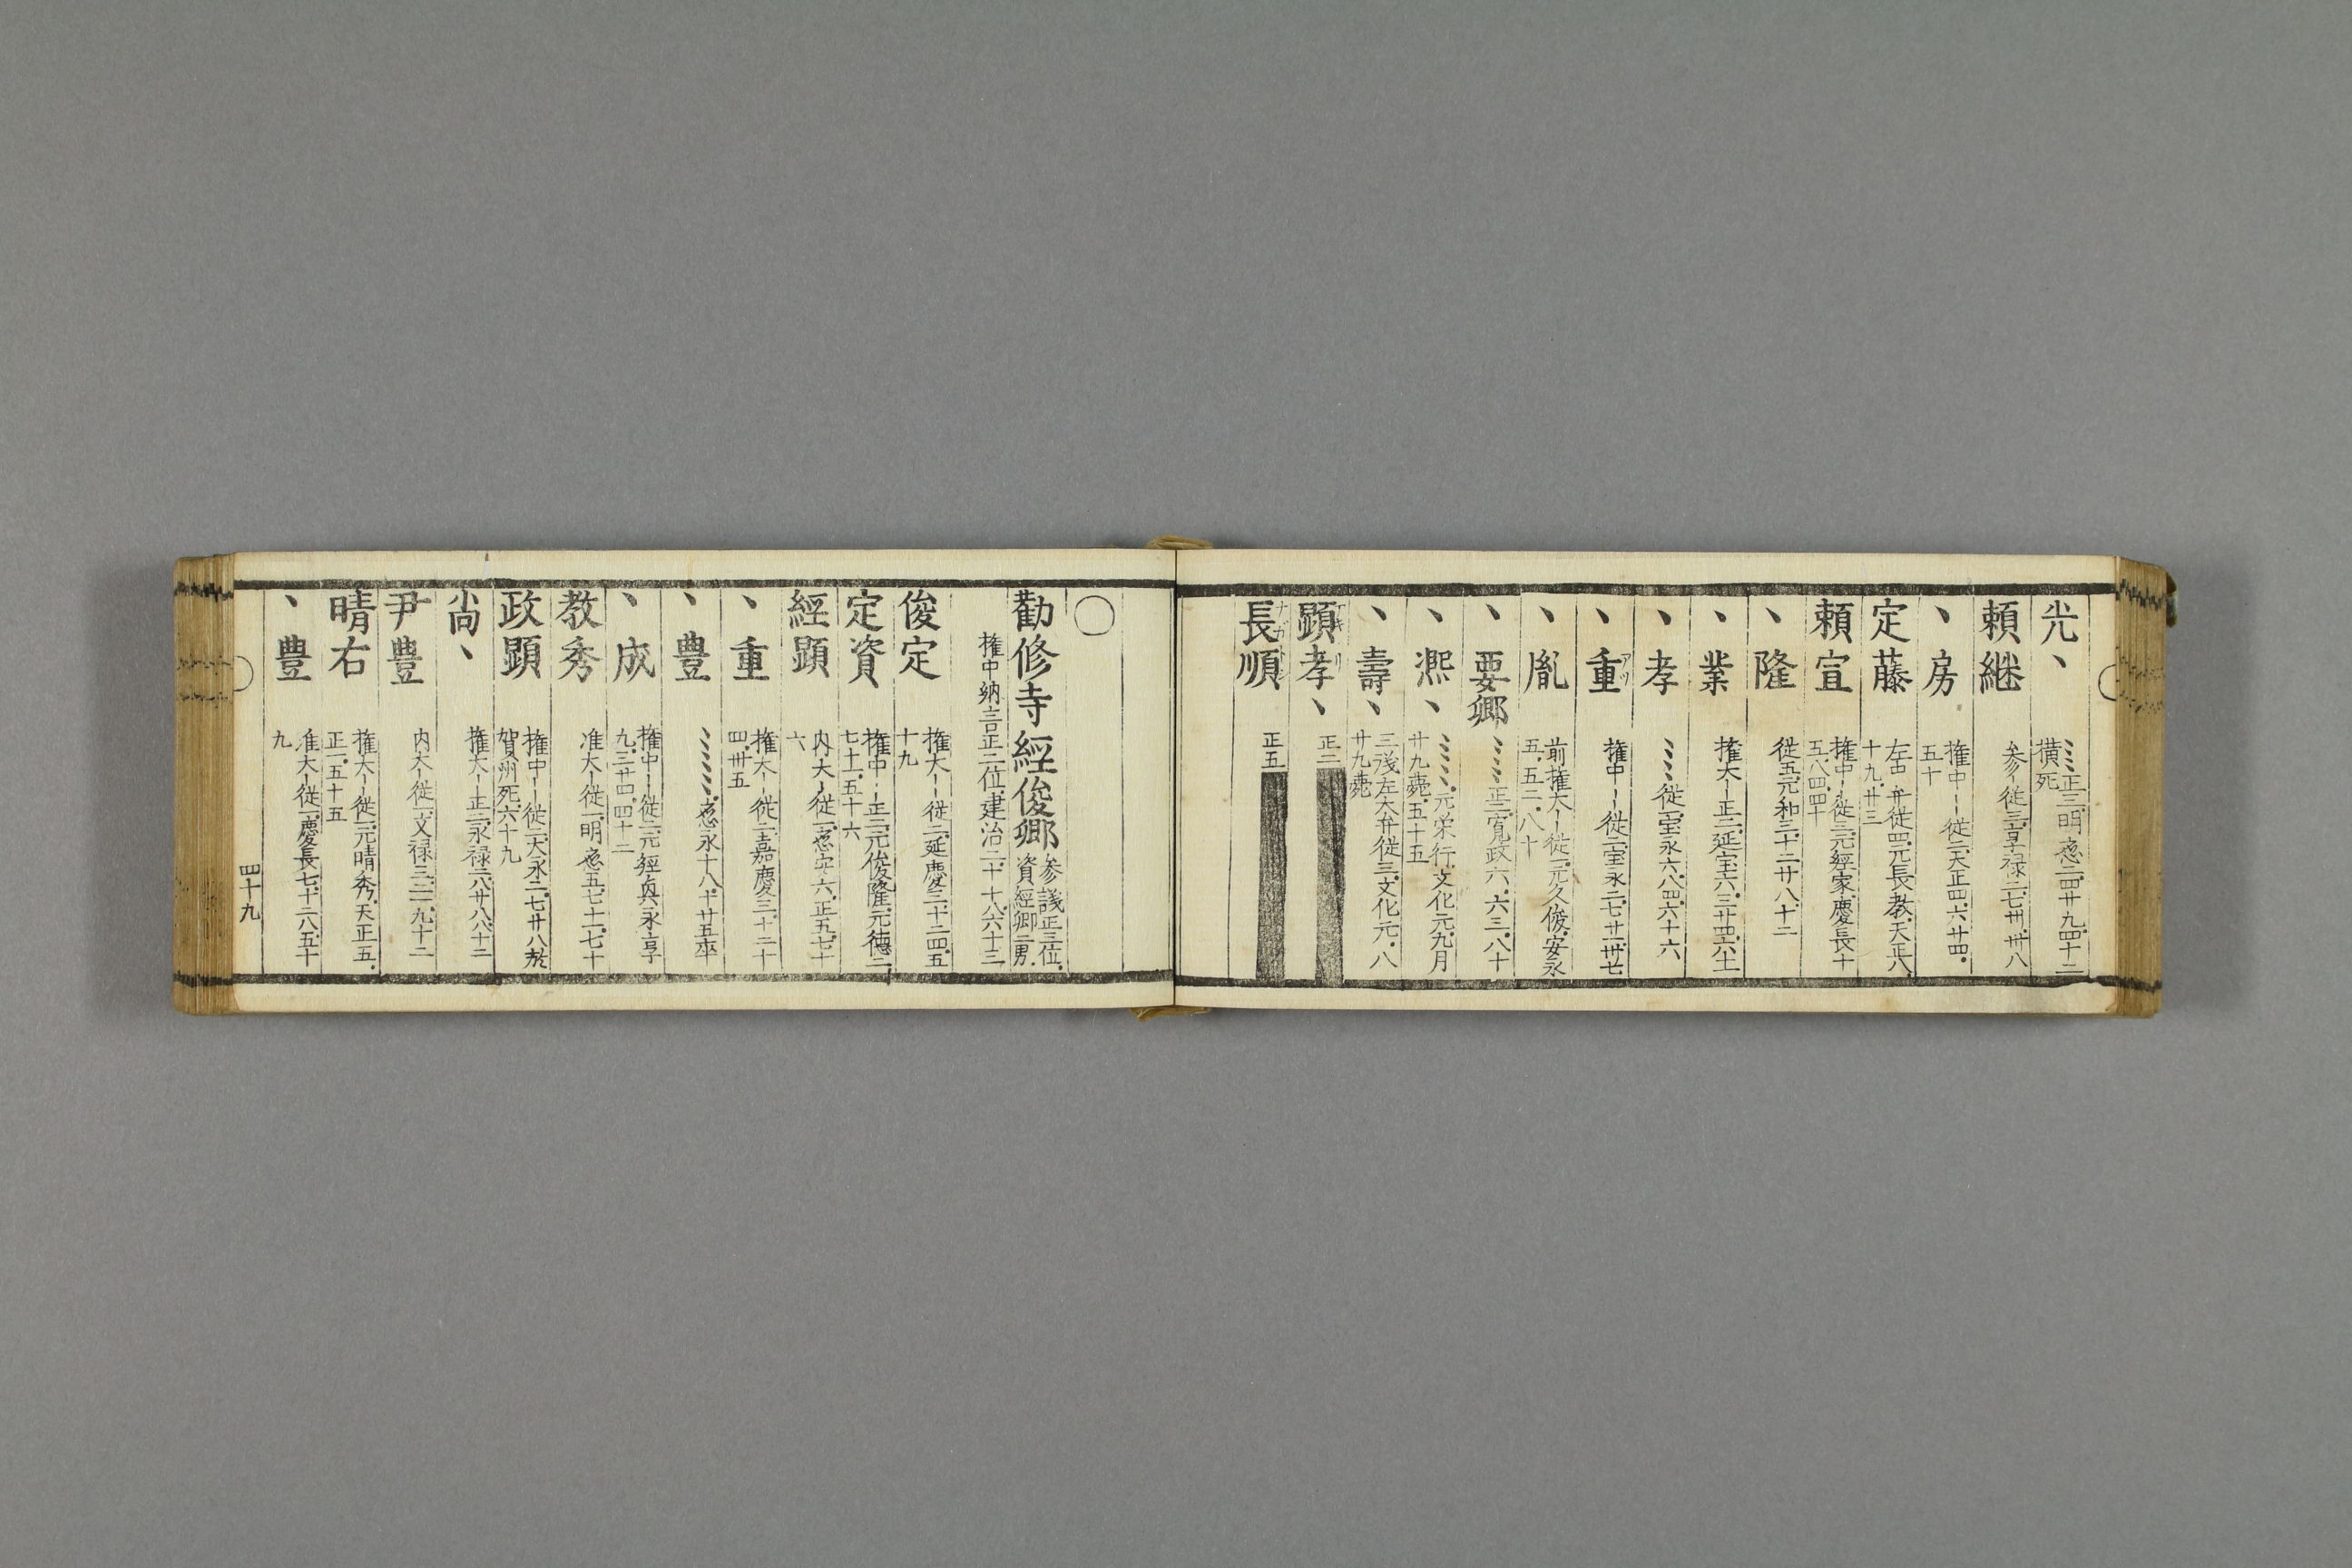 光、
ミミ正三.明應二.四廿九.四十二
横死
頼継
参ー従三.享禄二.七卅.卅八
、房
権中ー従二.天正四.六廿四.
五十
定藤
左中弁従四.元長教.天正八.
十九.廿三
頼宣
権中ー従三.元経家.慶長十
五.八四.四十
、隆
従五.元和三.十二廿八.十二
、業
権大ー正二.延宝六.三廿四.六十一
、孝
ミミ従一.宝永六.八四.六十六
、重アリ
権中ー従二.宝永二.七廿一.卅七
、胤
前権大ー従一.元久俊.安永
五.五二.八十
、要卿
ミミ正二.寛政六.六三.八十
、凞、
ミミ.元栄行.文化元.九月
廿九薨.五十五
、壽、
三溌左大弁従三.文化元.八
廿九薨
顕孝、
正二
長順
正五
◯
勸修寺 經俊卿
参議正三位.
資經卿二男.
権中納言正二位建治二.十.十八.六十三
俊定
権大ー従二.延慶三.十二四.五
十九
定資
権中ー正二.元俊隆.元德二.
七十一.五十六
經顕
内大ー従一.應安六.正五.七十
六
、重
権大ー従二.嘉慶三.十二十
四.卅五
、豊
ミミミ.應永十八.十廿五卒
、成
権中ー従二.元經興.永享
九.三廿四.四十二
教秀
准大ー従一.明應五.七十一.七十
政顕
権中ー従二.大永二.七廿八於
賀州死.六十九
尚、
権大ー正二.永禄二.六廿八.八十二
尹豊
内大ー従一.文禄三.二一.九十二
晴右
権大ー従一.元晴秀.天正五.
正一.五十五
、豊
准大ー従一.慶長七.十二八.五十
九
四十九